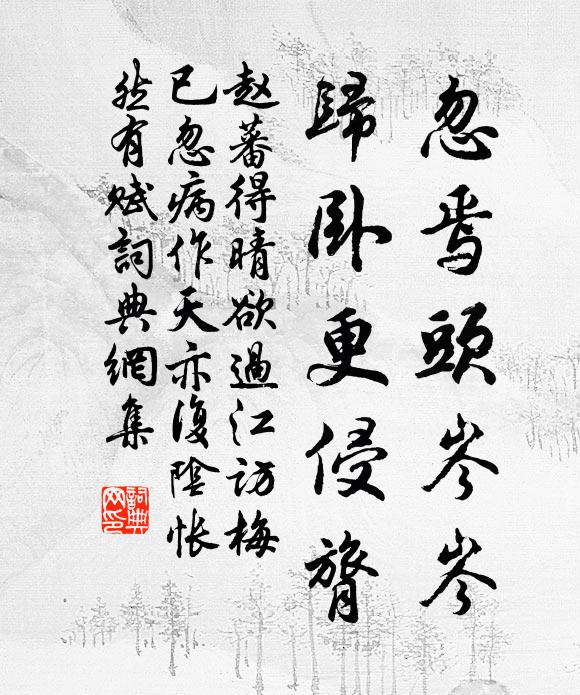 忽焉頭岑岑
歸臥更侵膂
趙蕃得晴欲過江訪梅
已忽病作天亦復陰悵
然有賦詞典網集
詞典
网印